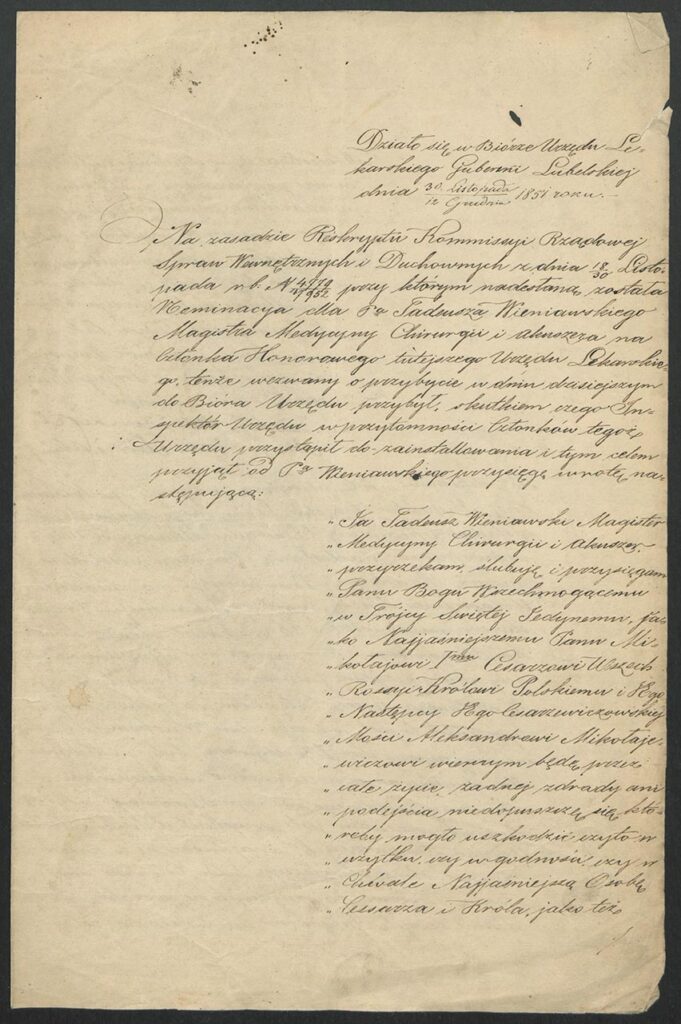 Działo się w Biórze Urzędu Le-
karskiego Gubernii Lubelskiej
dnia 30 Listopada / 12 Grudnia 1851 roku.-
Na zasadzie Reskryptu Kommissyi Rządowej
Spraw Wewnętrznych i Duchownych z dnia 18/30 Listo-
pada r. b. N przy którym nadesłaną została
Nominacya dla Pa Tadeusza Wieniawskiego
Magistra Medycyny Chirurgii i Akuszera na
Członka Honorowego tutejszego Urzędu Lekarskie-
go, tenże wezwany o przybycie w dniu dzisiejszym
do Bióra Urzędu przybył, skutkiem czego In-
spektor Urzędu w przytomności Członków tegoż
Urzędu przystąpił do zainstallowania i tym celem
przyjął od Pa Wieniawskiego przysięgę w rotę na-
stępującą:
„ Ja Tadeusz Wieniawski Magister
„ Medycyny Chirurgii i Akuszer
„ przyrzekam, ślubuję i przysięgam
„ Panu Bogu Wszechmogącemu
„ w Trójcy Świętej Jedynemu, ja-
„ ko Najjaśniejszemu Panu Mi-
„ kołajowi Imu Cesarzowi Wszech
„ Rossyi Królowi Polskiemu i Jego
„ Następcy Jego Cesarzewiczowskiej
„ Mości Aleksandrowi Mikołaje-
„ wiczowi wiernym będę przez
„ całe życie, żadnej zdrady ani
„ podejścia niedopuszczę się, któ-
„ reby mogło uszkodzić czyto w
„ użytku, czy w godności, czy w
„ Chwale Najjaśniejszą Osobę
„ Cesarza i Króla, jako też